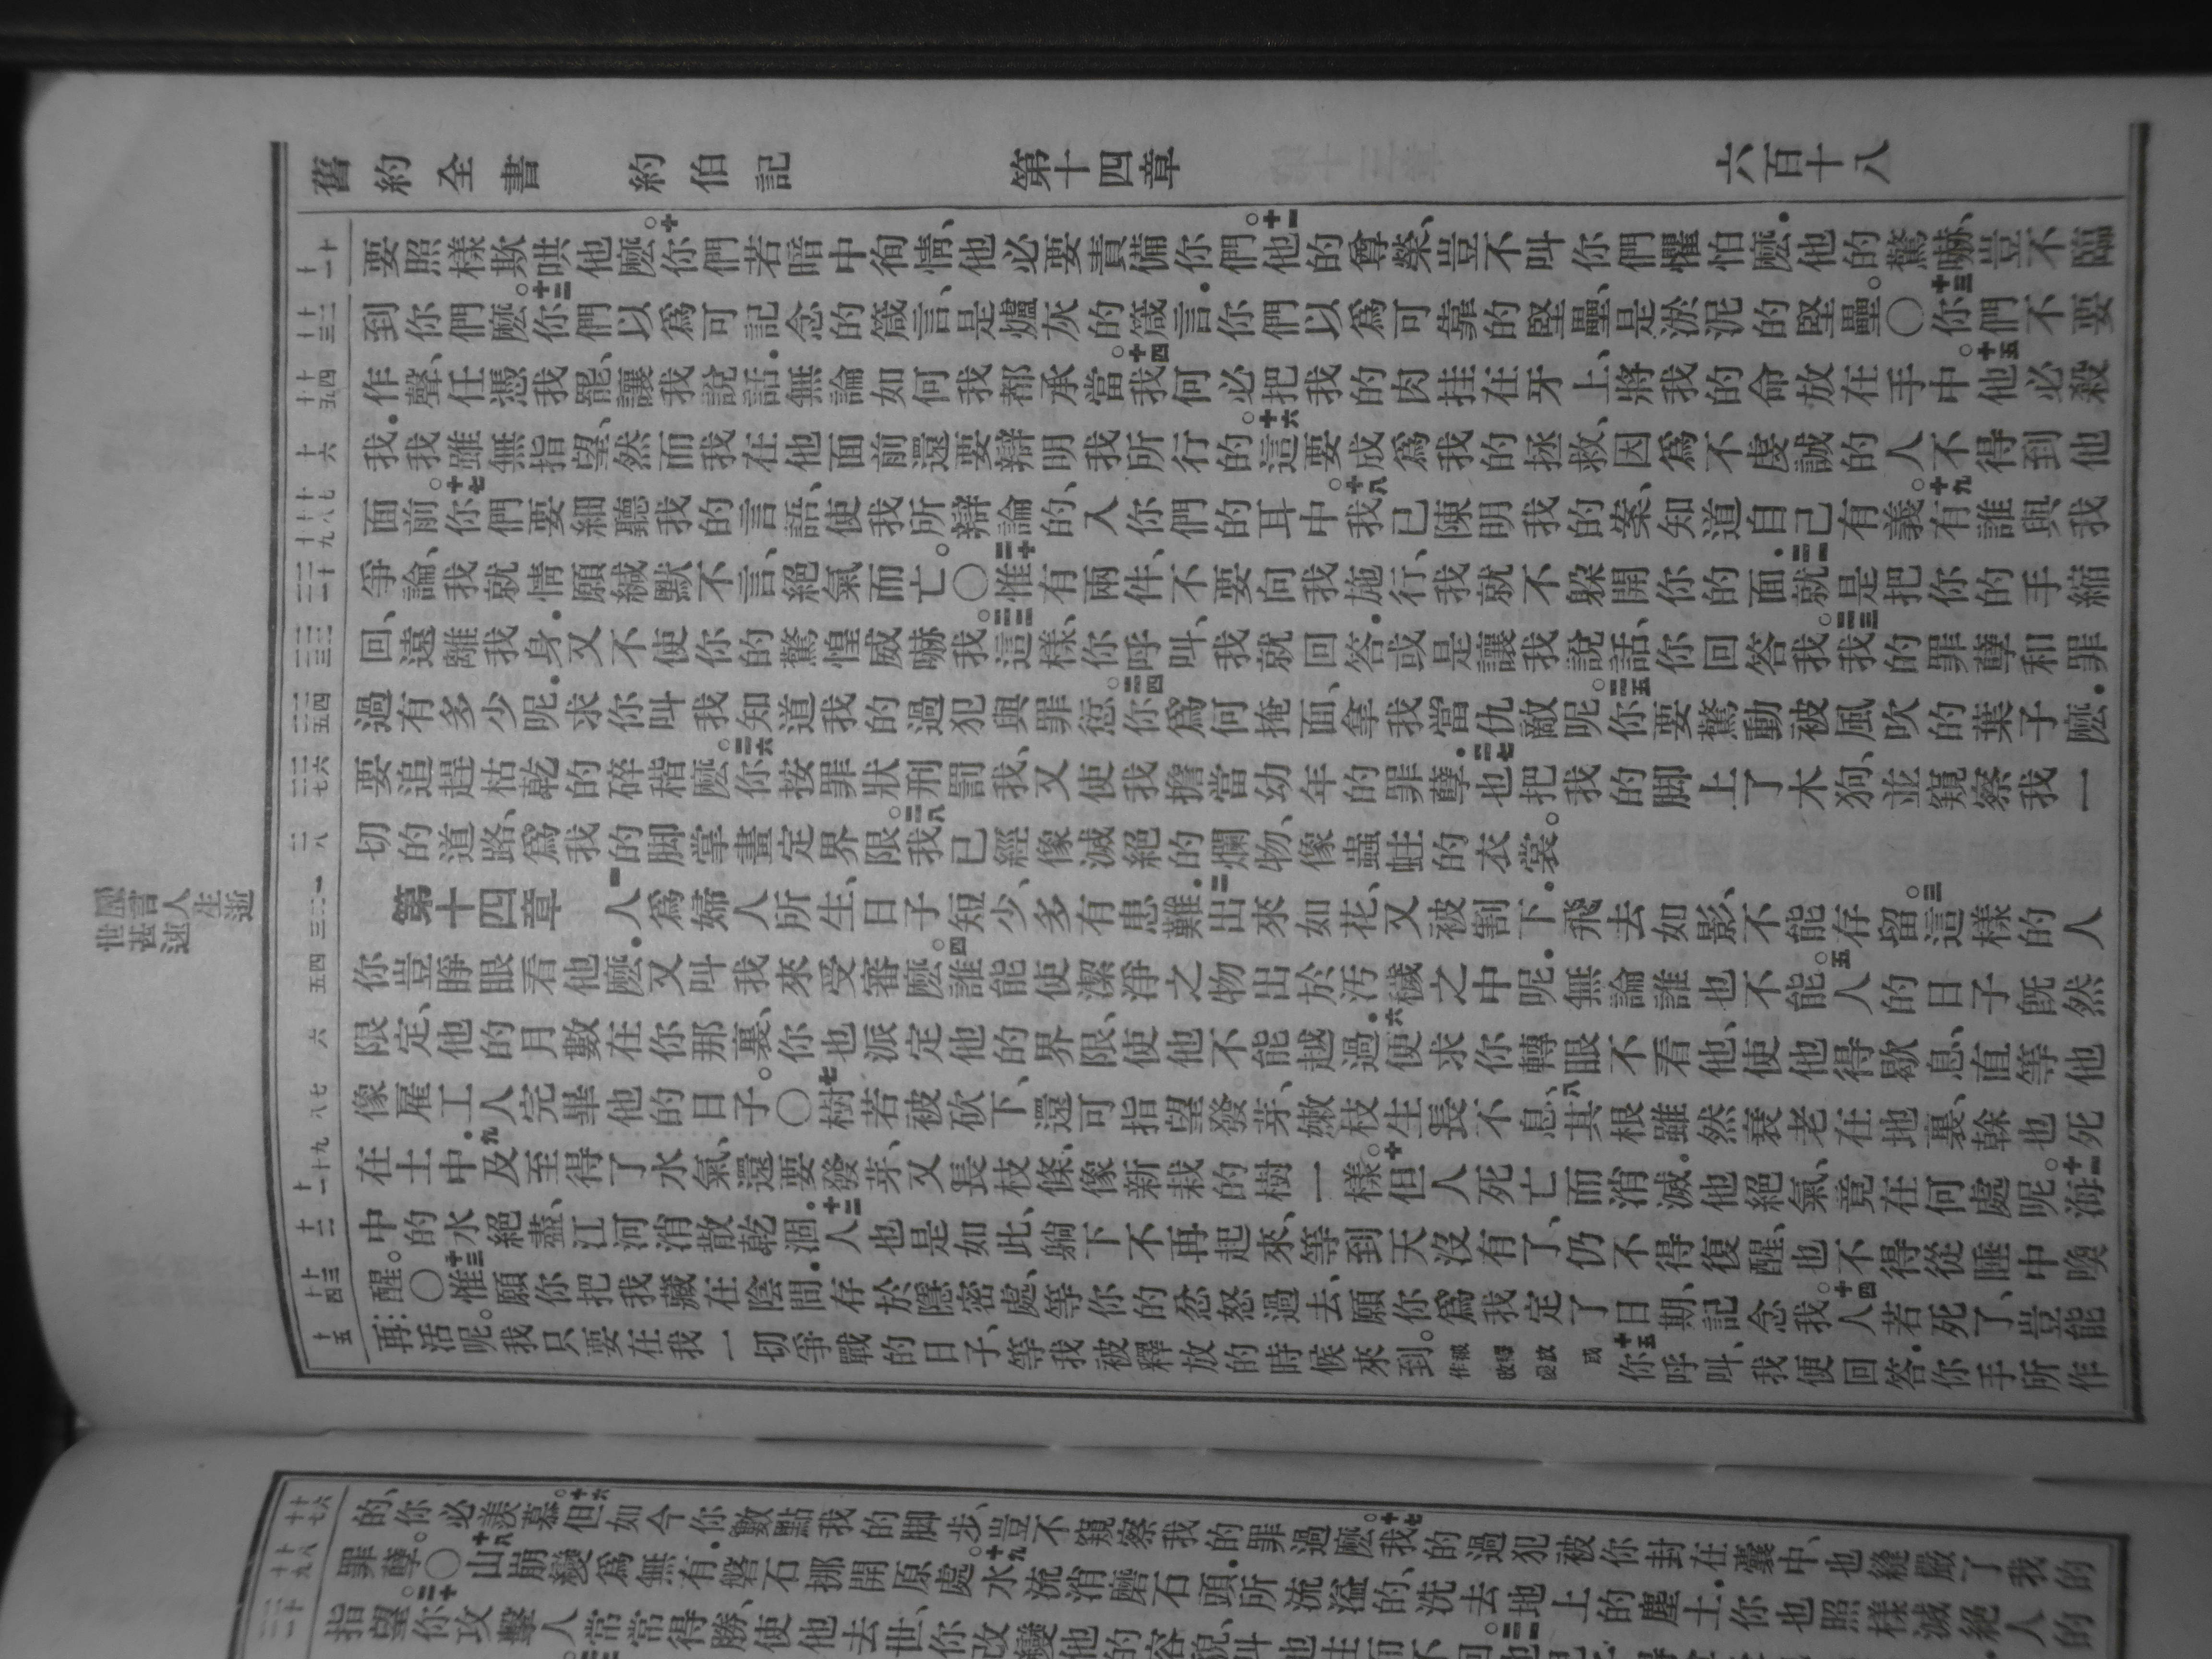 舊約全書 約伯記 第十四章 六百十八
要照樣欺哄他麼。十你們若暗中徇情、他必要責備你們。十一他的尊榮、豈不叫你們懼怕麼．他的驚嚇、豈不臨
到你們麼。十二你們以爲可記念的箴言、是爐灰的箴言．你們以爲可靠的堅壘、是淤泥的堅壘。〇十三你們不要
作聲、任憑我罷、讓我說話．無論如何我都承當。十四我何必把我的肉挂在牙上、將我的命放在手中。十五他必殺
我．我雖無指望、然而我在他面前還要辯明我所行的。十六這要成爲我的拯救、因爲不虔誠的人不得到他
面前。十七你們要細聽我的言語、使我所辯論的、入你們的耳中。十八我已陳明我的案、知道自己有義。十九有誰與我
爭論、我就情願緘默不言、絕氣而亡。〇二十惟有兩件、不要向我施行、我就不躲開你的面．二一就是把你的手縮
回、遠離我身．又不使你的驚惶威嚇我。二二這樣、你呼叫、我就回答．或是讓我說話、你回答我。二三我的罪孽和罪
過有多少呢．求你叫我知道我的過犯與罪愆。二四你爲何掩面、拿我當仇敵呢。二五你要驚動被風吹的葉子麼．
要追趕枯乾的碎稭麼。二六你按罪狀刑罰我、又使我擔當幼年的罪孽．二七也把我的脚上了木狗、並窺察我一
切的道路、爲我的脚掌畫定界限。二八我已經像滅絕的爛物、像蟲蛀的衣裳。
第十四章 一人爲婦人所生、日子短少、多有患難．二出來如花、又被割下．飛去如影、不能存留。三這樣的人
你豈睜眼看他麼．又叫我來受審麼。四誰能使潔淨之物出於污穢之中呢．無論誰也不能。五人的日子旣然
限定、他的月數在你那裏、你也派定他的界限、使他不能越過．六便求你轉眼不看他、使他得歇息、直等他
像雇工人完畢他的日子。〇七樹若被砍下、還可指望發芽、嫩枝生長不息、八其根雖然衰老在地裏、榦也死
在土中．九及至得了水氣、還要發芽、又長枝條、像新栽的樹一樣。十但人死亡而消滅．他絕氣、竟在何處呢。十一海
中的水絕盡、江河消散乾涸．十二人也是如此、躺下不再起來、等到天沒有了、仍不得復醒、也不得從睡中喚
醒。〇十三惟願你把我藏在陰間．存於隱密處、等你的忿怒過去、願你爲我定了日期、記念我。十四人若死了、豈能
再活呢。我只要在我一切爭戰的日子、等我被釋放的時候來到。十五你呼叫、我便回答．你手所作
的、你必羨慕。十六但如今你數點我的脚步、豈不窺察我的罪過麼。十七我的過犯被你封在囊中、也縫嚴了我的
罪孽。〇十八山崩變爲無有．磐石挪開原處。十九水流消磨石頭．所流溢的、洗去地上的塵土．你也照樣滅絕人的
指望。二十你攻擊人常常得勝、使他去世、你改變他的容貌、